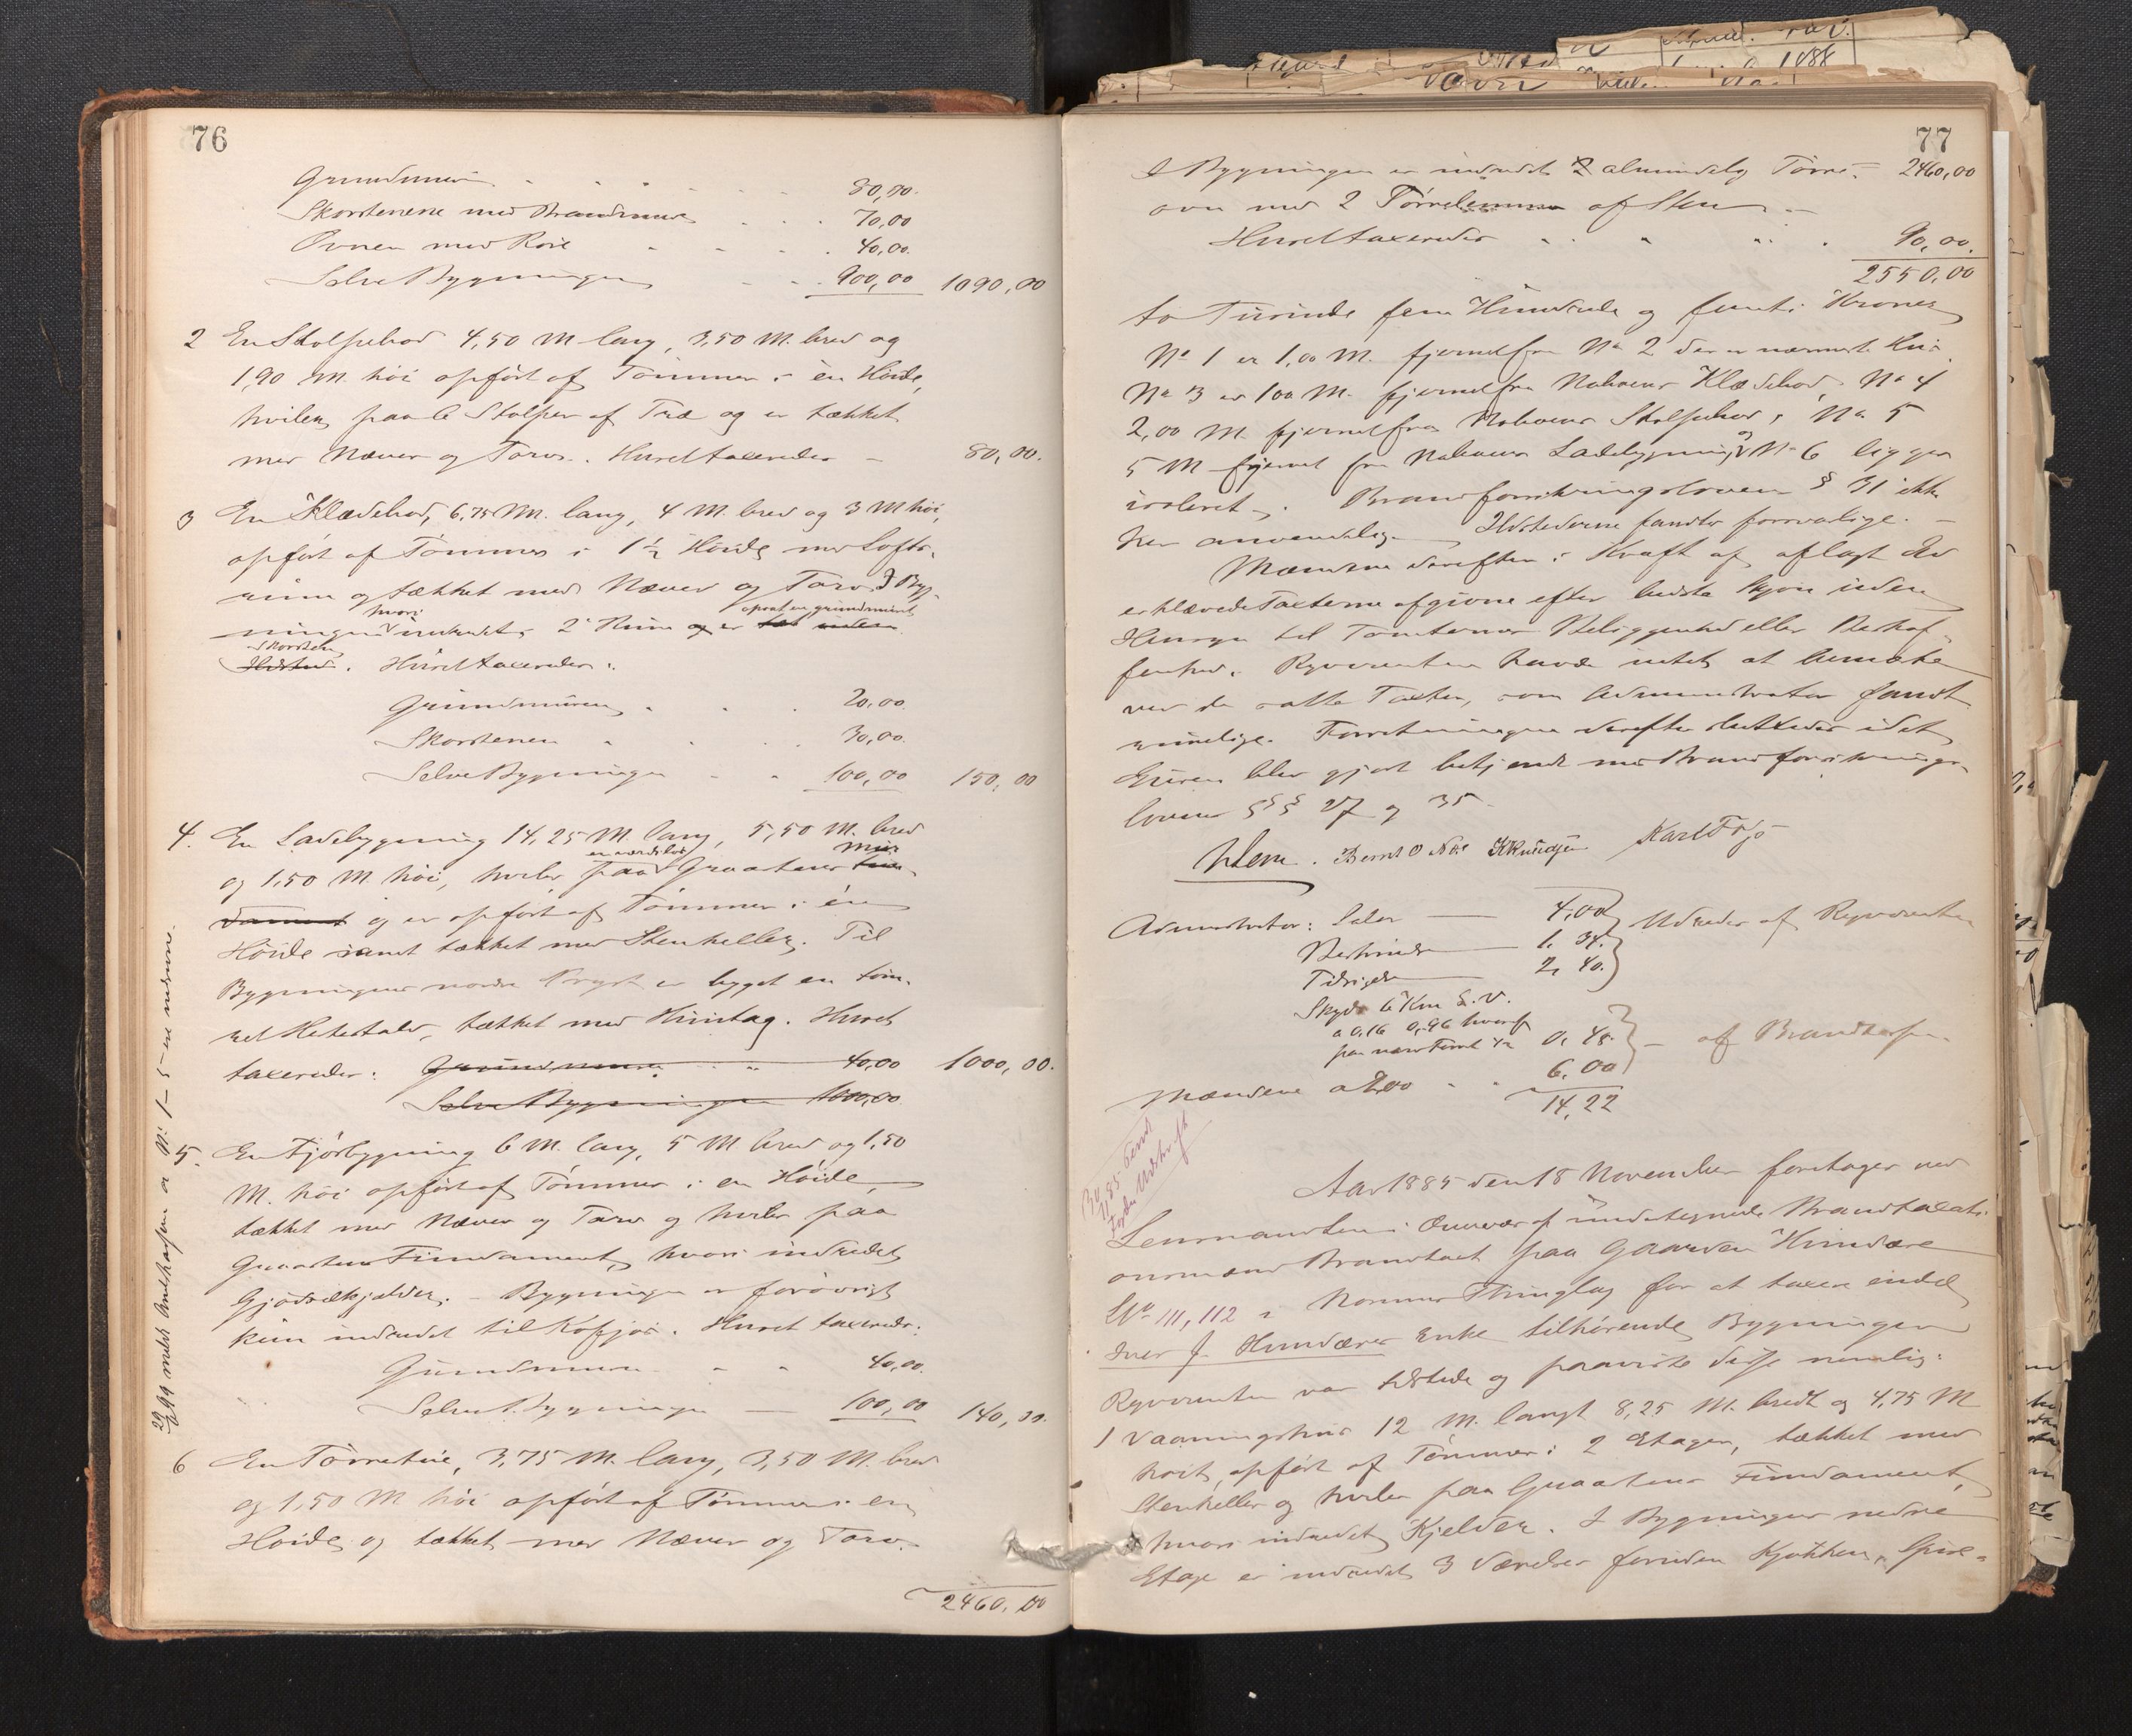 76
Grundmuren 80,00.
Skorstenene med Brandmure 70,00
Ovnen med Röie 40,00.
Selve Bygningen 900,00 1090,00
2 En Stolpebod 4,50 M lang, 3,50 M. bred og
1,90 M. höi opfört af Tömmer i èn Höide,
hviler paa 6 Stolper af Træ og er tækket
med Næver og Torv. Huset taxeredes - 80,00.
3 En Klædebod, 6,75 M. lang, 4 M. bred og 3 M höi,
opfört af Tömmer i 1½ Höide med Lofts-
rum og tækket med Næver og Torv. I Byg-
hvori opsat en grundmuret
ningen indredet 2 Rum og er
Skorsten
Ildsted. Huset taxeredes:
Grundmuren 20,00.
Skorstenen 30,00.
Selve Bygningen 100,00 150,00
4. En Ladebygning 14,25 M. lang, 5,50 M. bred
mur
og 1,50 M. höi, hviler paa Graastens Fun-
dament og er opfört af Tömmer i én
Höide samt tækket med Stenheller. Til
Bygningens nordre Bryst er bygget en töm-
ret Hestestald, tækket med Huntag. Huset
taxeredes: Grundmuren 40,00 1000,00.
Selve Bygningen 1000,00
5. En Fjösbygning 6 M. lang, 5 M bred og 1,50
M. höi opfört af Tömmer i en Höide,
tækket med Næver og Torv og hviler paa
Graastens Fundament, hvori indredet
Gjödselkjælder. - Bygningen er forövrigt
kun indredet til Kofjös. Huset taxeredes:
Grundmuren 40,00.
Selve Bygningen 100,00 140,00.
6 En Törrestue, 3,75 M. lang, 3,50 M. bred
og 1,50 M höi opfört af Tömmer i en
Höide og tækket med Næver og Torv.
2460,00
77
I Bygningen er indredet 2 almindelig Törre- 2460,00
ovn med 2 Törrelemmer af Sten -
Huset taxeredes 90,00.
2550,00
to Tusinde fem Hundrede og femti Kroner
No 1 er 1,00 M. fjernet fra No 2 der er nærmeste Hus
No 3 er 100 M. fjernet fra Naboens Klædebod, No 4
2,00 M. fjernet fra Naboens Stolpebod, No 5
og
5 M fjernet fra Naboens Ladebygning No 6 ligger
isoleret. Brandforsikringslovens § 31 ikke
her anvendelig. Ildstederne fandtes forsvarlige. -
Mændene derefter i Kraft af aflagt Ed
erklærede Taxterne afgivne efter bedste Skjön uden
Hensyn til Tomternes Beliggenhed eller Beskaf-
fenhed. Rekvirenten havde intet at bemærke
ved de satte Taxter, som Administrator fandt
rimelige. Forretningen derefter sluttedes idet
Eieren blev gjort bekjendt med Brandforsikrings-
lovens §§§ 27 og 35.
Bernt O K Knudsen Karl
Administrator: Salær 4,00 Udredes af Rekvirenten
1. 34.
2, 40.
Skyds 6 Km
a 0,16 0,96 hvoraf
0, 48. - af Brandkassen.
Mændene a 2,00 6,00
14,22
Aar 1885 den 18 November foretoges ved
Lensmanden i Overvær af undertegnede Brandtaxati-
onsmænd Brandtaxt paa Gaarden Hundere
No 111, 112 i Thinglag for at taxere endel
Iver J. Hunderes Enke tilhörende Bygninger
Rekvirenten var tilstede og paaviste disse nemlig:
1 Vaaningshus 12 M. langt 8,25 M. bredt og 4,75 M
höit, opfört af Tömmer i 2 Etager, tækket med
Stenheller og hviler paa Graastens Fundament,
hvori indredet Kjelder. I Bygningens nedre
Etage er indredet 3 Værelser foruden Kjökken, Spise-